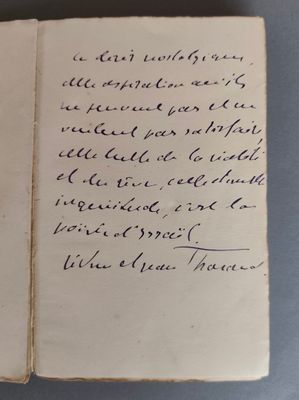 ce désir nostalgique,
cette aspiration qu'ils
ne peuvent pas et ne
veulent pas satisfaire,
cette lutte de la réalité
et du rêve, cette double
inquiétude, c'est la
poésie d'Israël.
Jérôme et Jean Tharaud